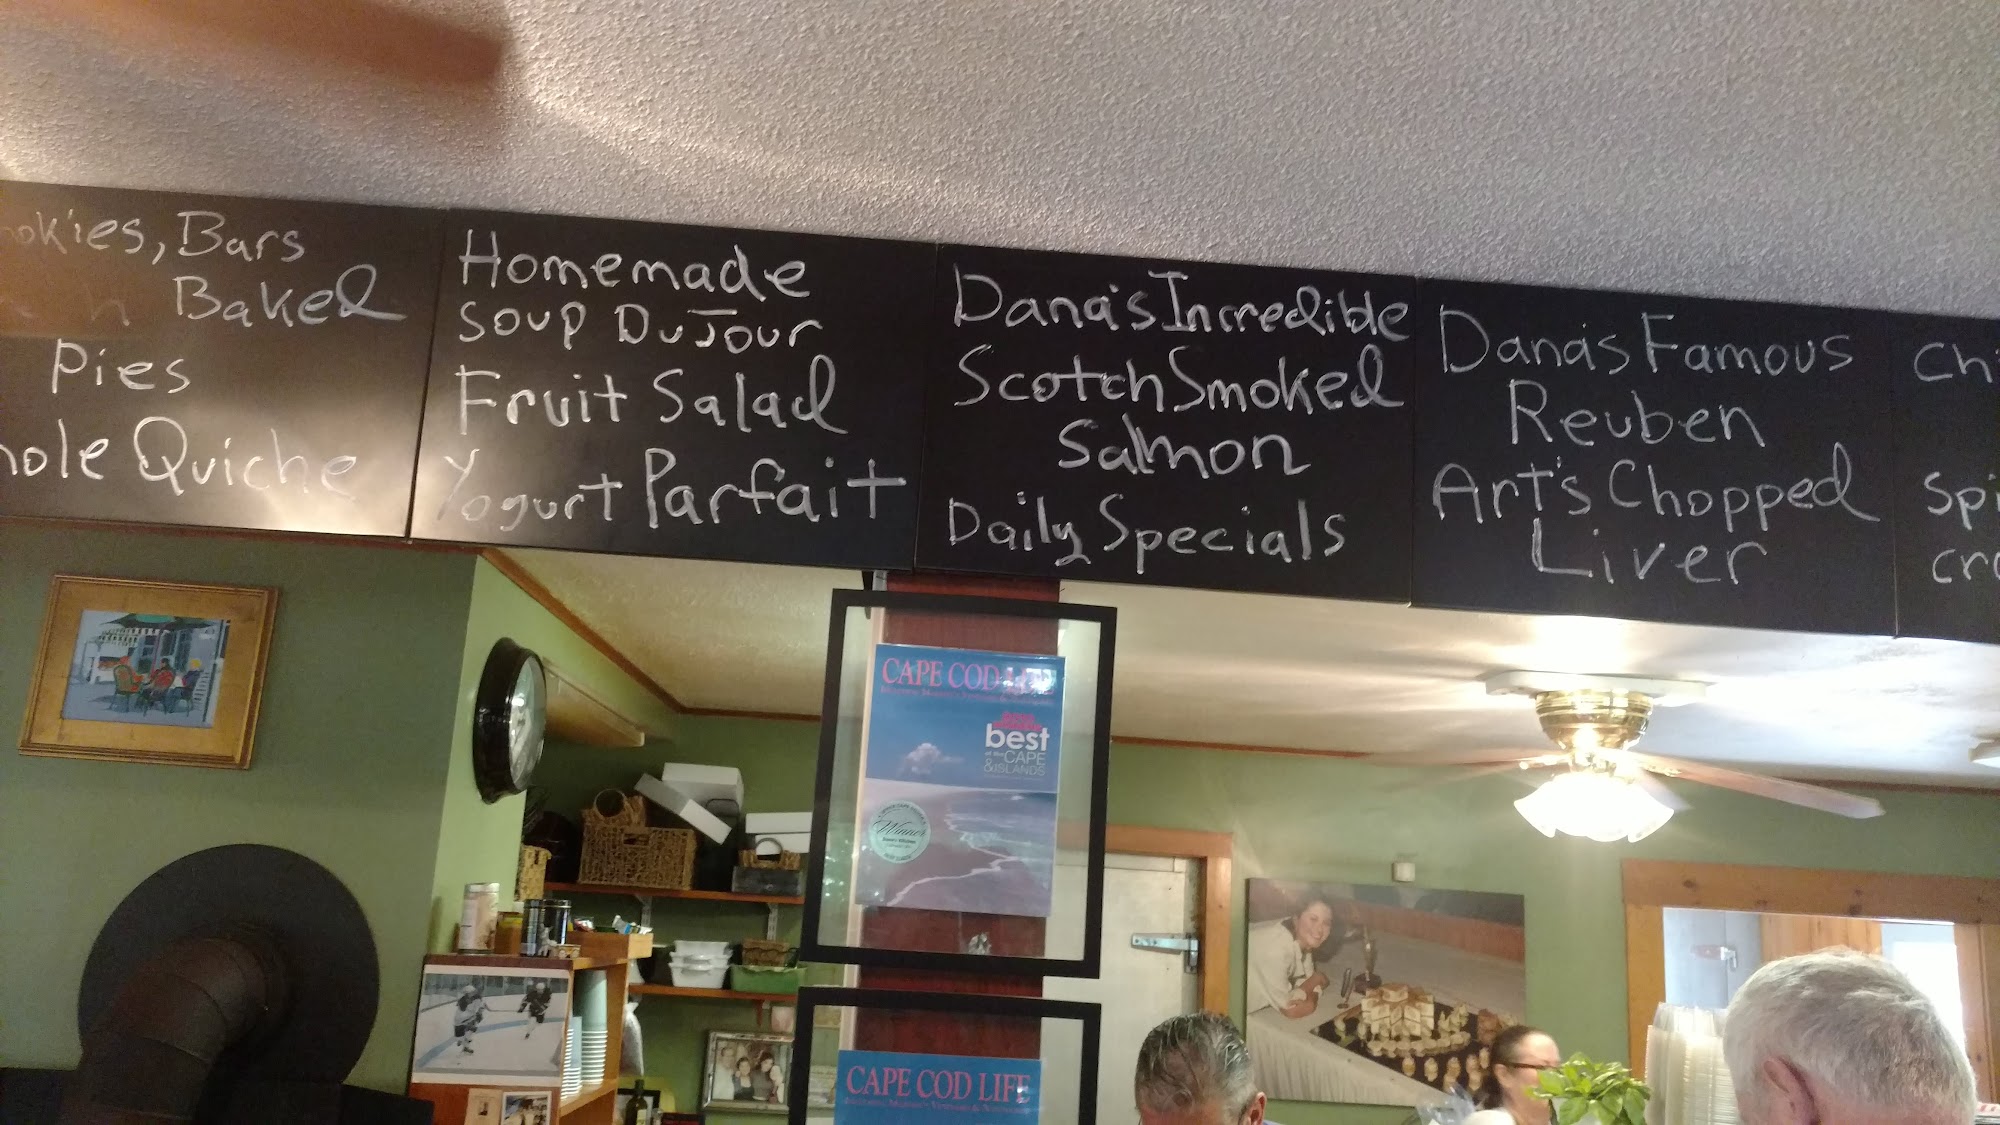 Bars
Baked
Pies
Quiche
Homemade
Soup DuJour
Fruit Salad
Yogurt Parfait
Dana's Incredible
Scotch Smoked
Salmon
Daily Specials
Dana's Famous
Reuben
Art's Chopped
Liver
CAPE COD LIFE
best
of the CAPE
& ISLANDS
Winner
CAPE COD LIFE